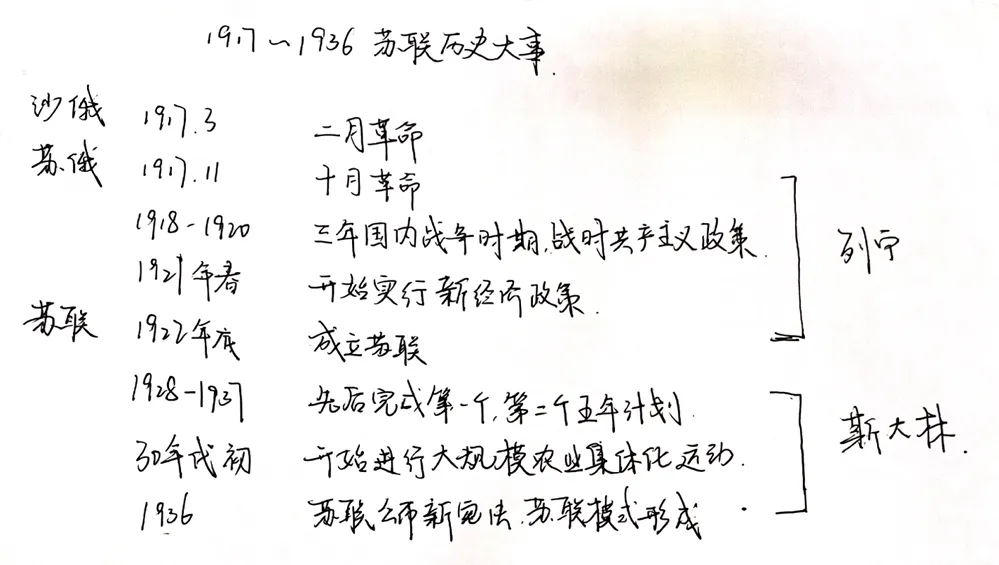 1917~1936 苏联历史大事.
沙俄 1917.3 二月革命
苏俄 1917.11 十月革命
1918-1920 三年国内战争时期,战时共产主义政策.
1921年春 开始实行新经济政策.
列宁
苏联 1922年底 成立苏联
1928-1937 先后完成第一个,第二个五年计划.
30年代初 开始进行大规模农业集体化运动.
斯大林.
1936 苏联公布新宪法.苏联模式形成